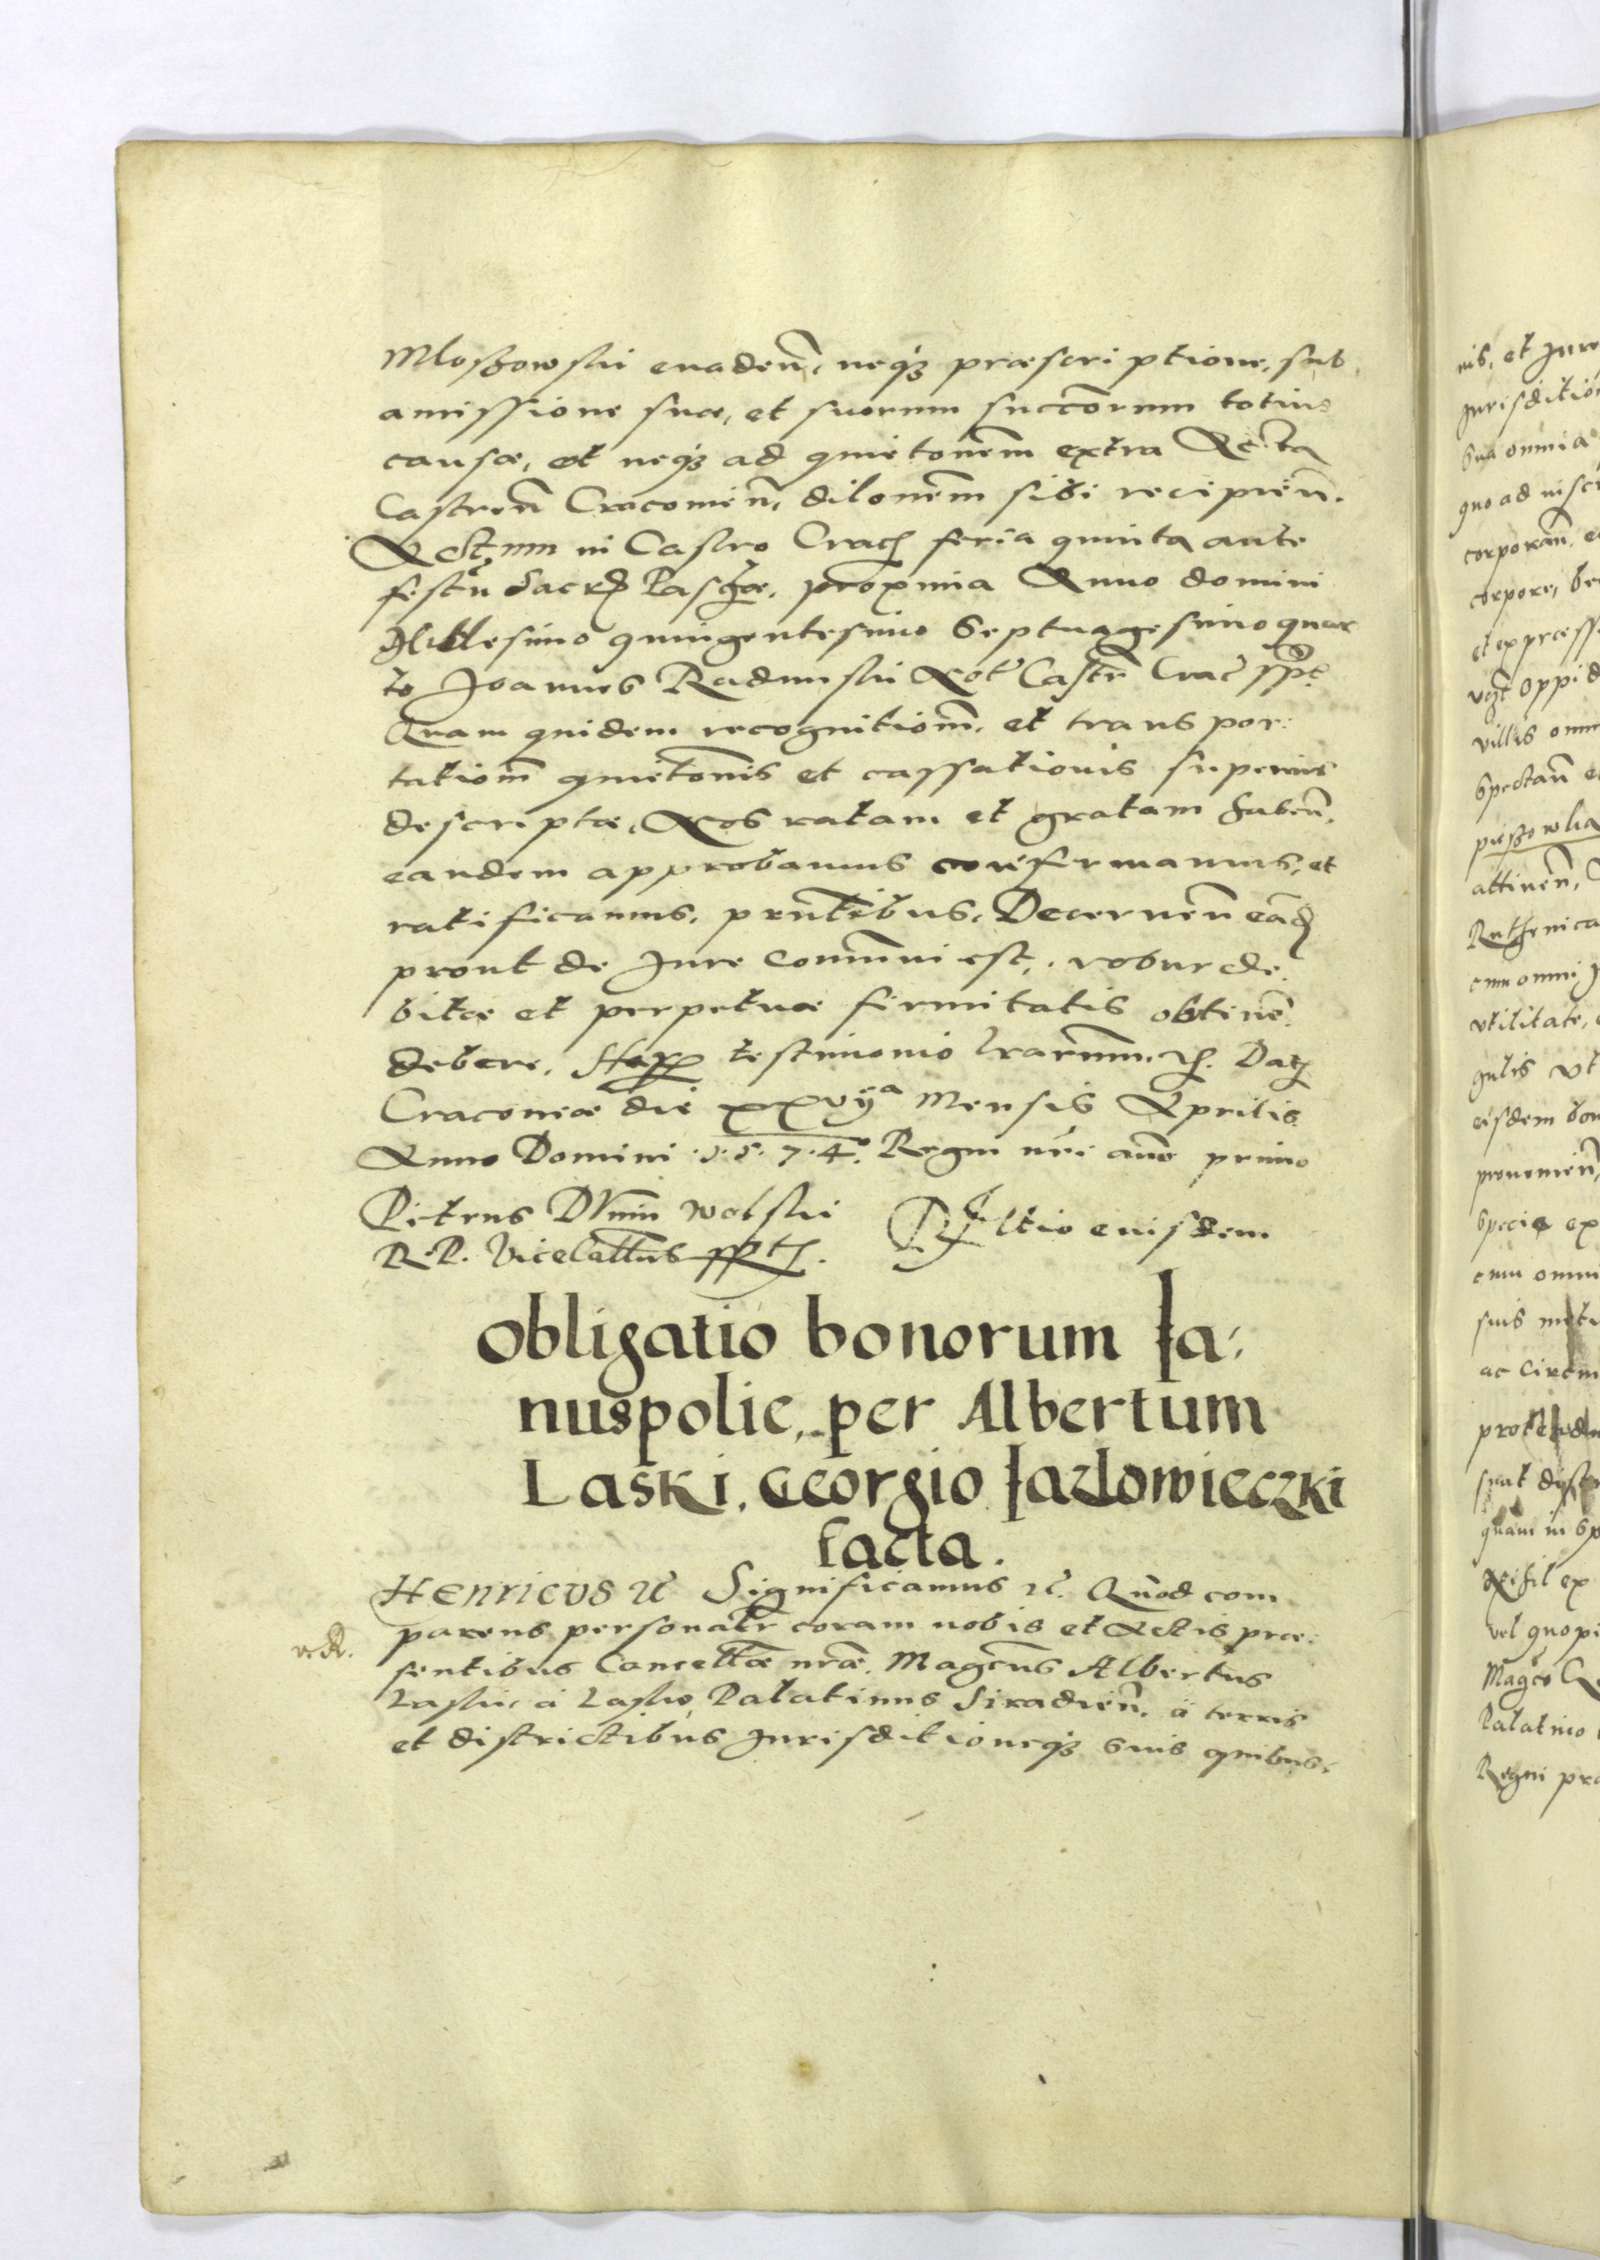 Mloszowski evaden̄, neq̄ꝫ præscriptione, sub
amissione suæ, et suorum succōrum totius
causæ, et neq̄ꝫ ad quietōnem extra Acta
Castren̄ Cracovien̄, dilōnem sibi recipien̄.
Actum in Castro Crac̄ feria quinta ante
festū Sacr̄ Paschæ, proxima Anno domini
Millesimo quingentesimo Septuagesimo quar
to Joannes Radunski Not̄ Castr̄ Crac̄ sspt̄.
Quam quidem recognitionē, et transpor:
tationē quietōnis et cassationis superius
descriptæ, Nos ratam et gratam haben̄,
eandem approbamus confirmamus, et
ratificamus, prn̄tibus, Decernen̄ eād̄
prout de Jure Commūni est, robur de:
bitæ et perpetuæ firmitatis obtinē:
debere, Harꝝ testimonio lrarum. ꝛc̄. Datꝫ
Cracoviæ die xxvijᵃ Mensis Aprilis
Anno Domini .1.5.7.4. Regni nr̄i anō primo
Petrus Dunin Wolski
R. P. Vicecallrius sspt̄.
Rltio eiusdem
Obligatio bonorum Ja:
nuspolie, per Albertum
Laski, Georgio Jazlowieczki
facta.
Henricvs ꝛc̄ Significamus ꝛc̄. Quod com
parens personalr̄ coram nobis et Actis præ:
sentibus Cancellr̄æ nr̄æ, Mag̃cus Albertus
Laski, à Lasko, Palatinus Siradien̄, à terris
et districtibus Jurisditioneq̄ꝫ suis quibus,
nis, et Jure
Jurisdition
sua omnia
quo ad
corporan̄,
corpore,
et expresse
vꝫt Oppid
villis omn
spectan̄ e
pieszowka
attinen̄,
Ruthenica
cum omni J
utilitate,
gulis ut
eisdem bon
provenien̄,
specie ex
cum omni
suis met
ac Circm
quam in sp
Nihil ex
vel quopi
Mag̃co
Palatino
Regni pra